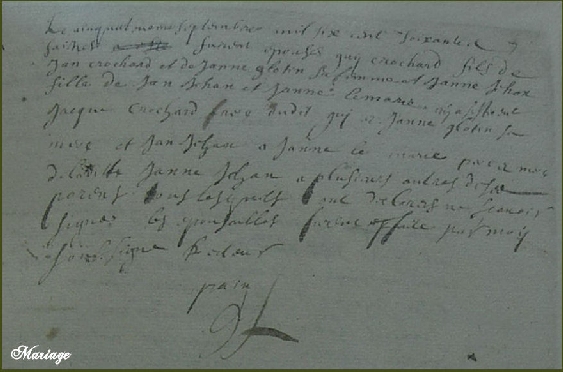 Le cinquiesme septembre mil six cent soixante
furent épousés guy crochard fils de
Jan crochard et de Janne glotin sa femme et Janne Jehan
fille de Jan Jehan et Janne lemarie
Jacque Crochard frere dudit guy et Janne glotin sa
mere et Jan Jehan a Janne le marie pere a mere
de laditte Janne Jehan a plusieurs autres de
parents tous lesquels ont declares ne scavoir
signer les epousailles furent faite par moy
soubsigne Recteur
pain
Mariage